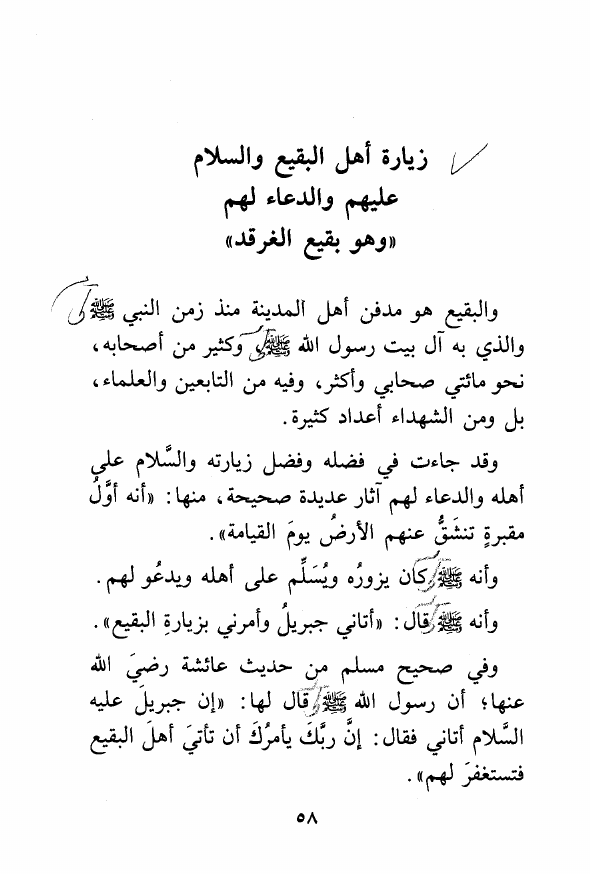 زيارة أهل البقيع والسلام
عليهم والدعاء لهم
«وهو بقيع الغرقد»
والبقيع هو مدفن أهل المدينة منذ زمن النبي ﷺ
والذي به آل بيت رسول الله ﷺ وكثير من أصحابه،
نحو مائتي صحابي وأكثر، وفيه من التابعين والعلماء،
بل ومن الشهداء أعداد كثيرة.
وقد جاءت في فضله وفضل زيارته والسَّلام على
أهله والدعاء لهم آثار عديدة صحيحة، منها: «أنه أوَّلُ
مقبرةٍ تنشَقُّ عنهم الأرضُ يومَ القيامة».
وأنه ﷺ كان يزورُه ويُسَلِّم على أهله ويدعُو لهم.
وأنه ﷺ قال: «أتاني جبريلُ وأمرني بزيارةِ البقيع».
وفي صحيح مسلم من حديث عائشة رضيَ الله
عنها؛ أن رسول الله ﷺ قال لها: «إن جبريلَ عليه
السَّلام أتاني فقال: إنَّ ربَّكَ يأمرُكَ أن تأتيَ أهلَ البقيع
فتستغفرَ لهم».
٥٨